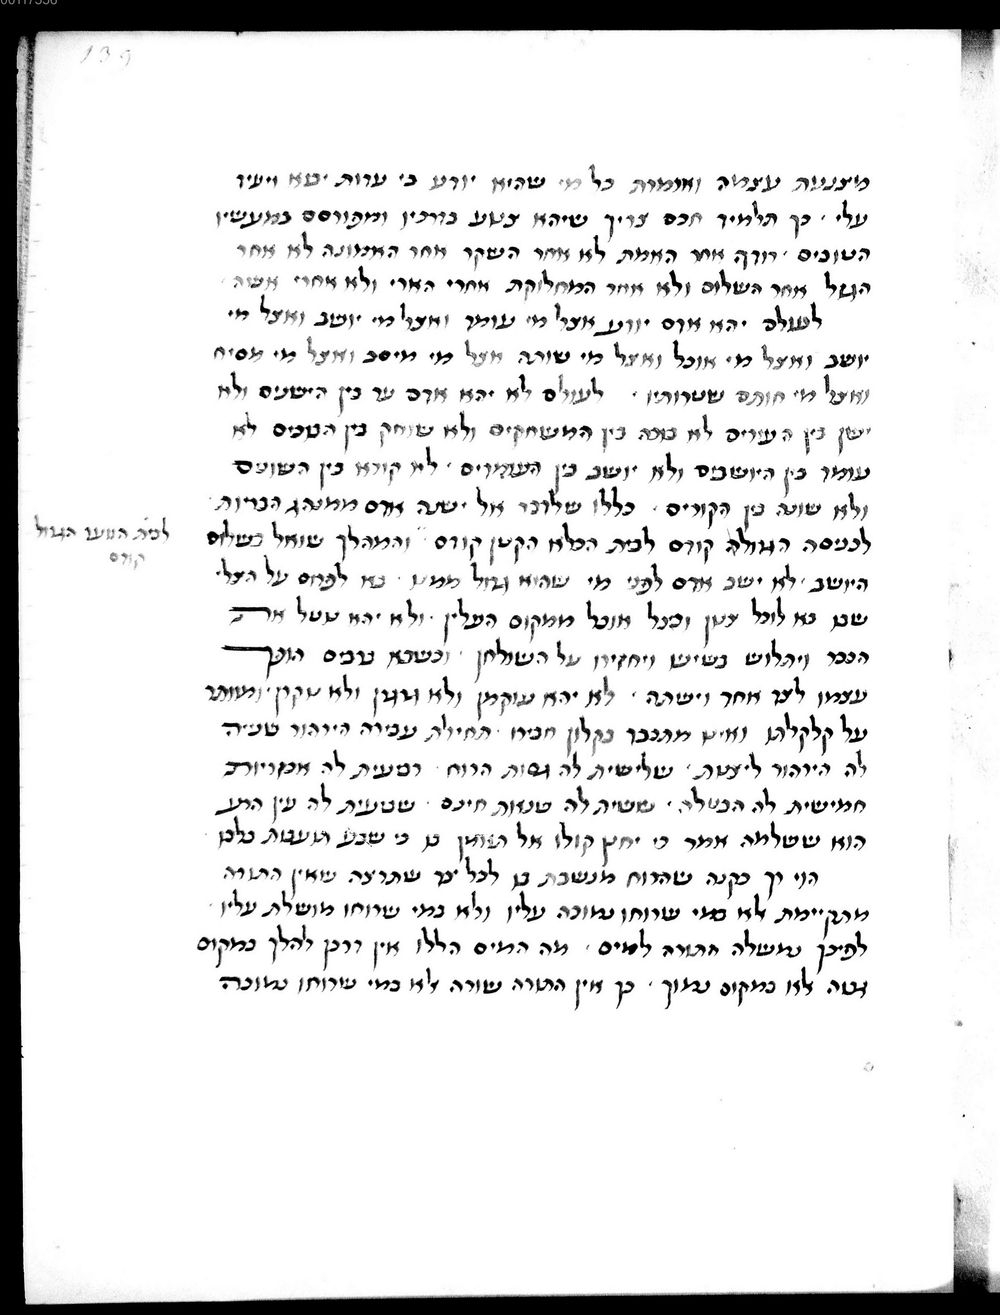 139
מצנעת עצמה ואומרת כל מי שהיא יודע בי עדות יבא ויעיד
עלי · כך תלמיד חכם צריך שיהא צנוע בדרכיו ומפורסם במעשיו
הטובים · רודף אחר האמת לא אחר השקר אחר האמונה לא אחר
הגזל אחר השלום ולא אחר המחלוקת אחרי הארי ולא אחרי אשה ·
לעולם יהא אדם יודע אצל מי עומד ואצל מי יושב ואצל מי
יושב ואצל מי אוכל ואצל מי שותה אצל מי מיסב ואצל מי מסיח
ואצל מי חותם שטרותיו · לעולם לא יהא אדם ער בין הישנים ולא
ישן בין הערים לא בוכה בין המשחקים ולא שוחק בין הבוכים לא
עומד בין היושבים ולא יושב בין העומדים · לא קורא בין השונים
ולא שונה בין הקורים · כללו שלדבר אל ישנה אדם ממנהג הבריות ·
לכניסה הגדולה קודם לבית המלא הקטן קודם והמהלך שואל בשלום
לבית הוועד הגדול
קודם
היושב · לא ישב אדם לפני מי שהוא גדול ממנו · בא לפרוס על הצלי
שבו בא לוכל צנון ובצל אוכל ממקום העלין · ולא יהא נוטל את
הככר ויתלוש בשיניו ויחזירו על השולחן · וכשבא הופך
עצמו לצד אחר וישתה · לא יהא עוקמן ולא גרגרן ולא · ומוותר
על קלקלתו ואינו מתכבד בקלון חבירו · תחילת עבירה הירהור שנייה
לה הירהור ליצנות · שלישית לה גסות הרוח · רביעית לה אכזריות
חמישית לה הבטלה · ששית לה שנאת חינם · שביעית לה עין הרע
הוא ששלמה אמר כי יחנן קולו אל תאמן בו כי שבע תועבות בלבו
הוי רך כקנה שהרוח מנשבת בו לכל צד שתרצה שאין התורה
מתקיימת לא במי שרוחו נמוכה עליו ולא במי שרוחו מושלת עליו ·
לפיכך נמשלה התורה למים · מה המים הללו אין דרכן להלך במקום
גבוה לא במקום נמוך · כך אין התורה שורה לא במי שרוחו נמוכה